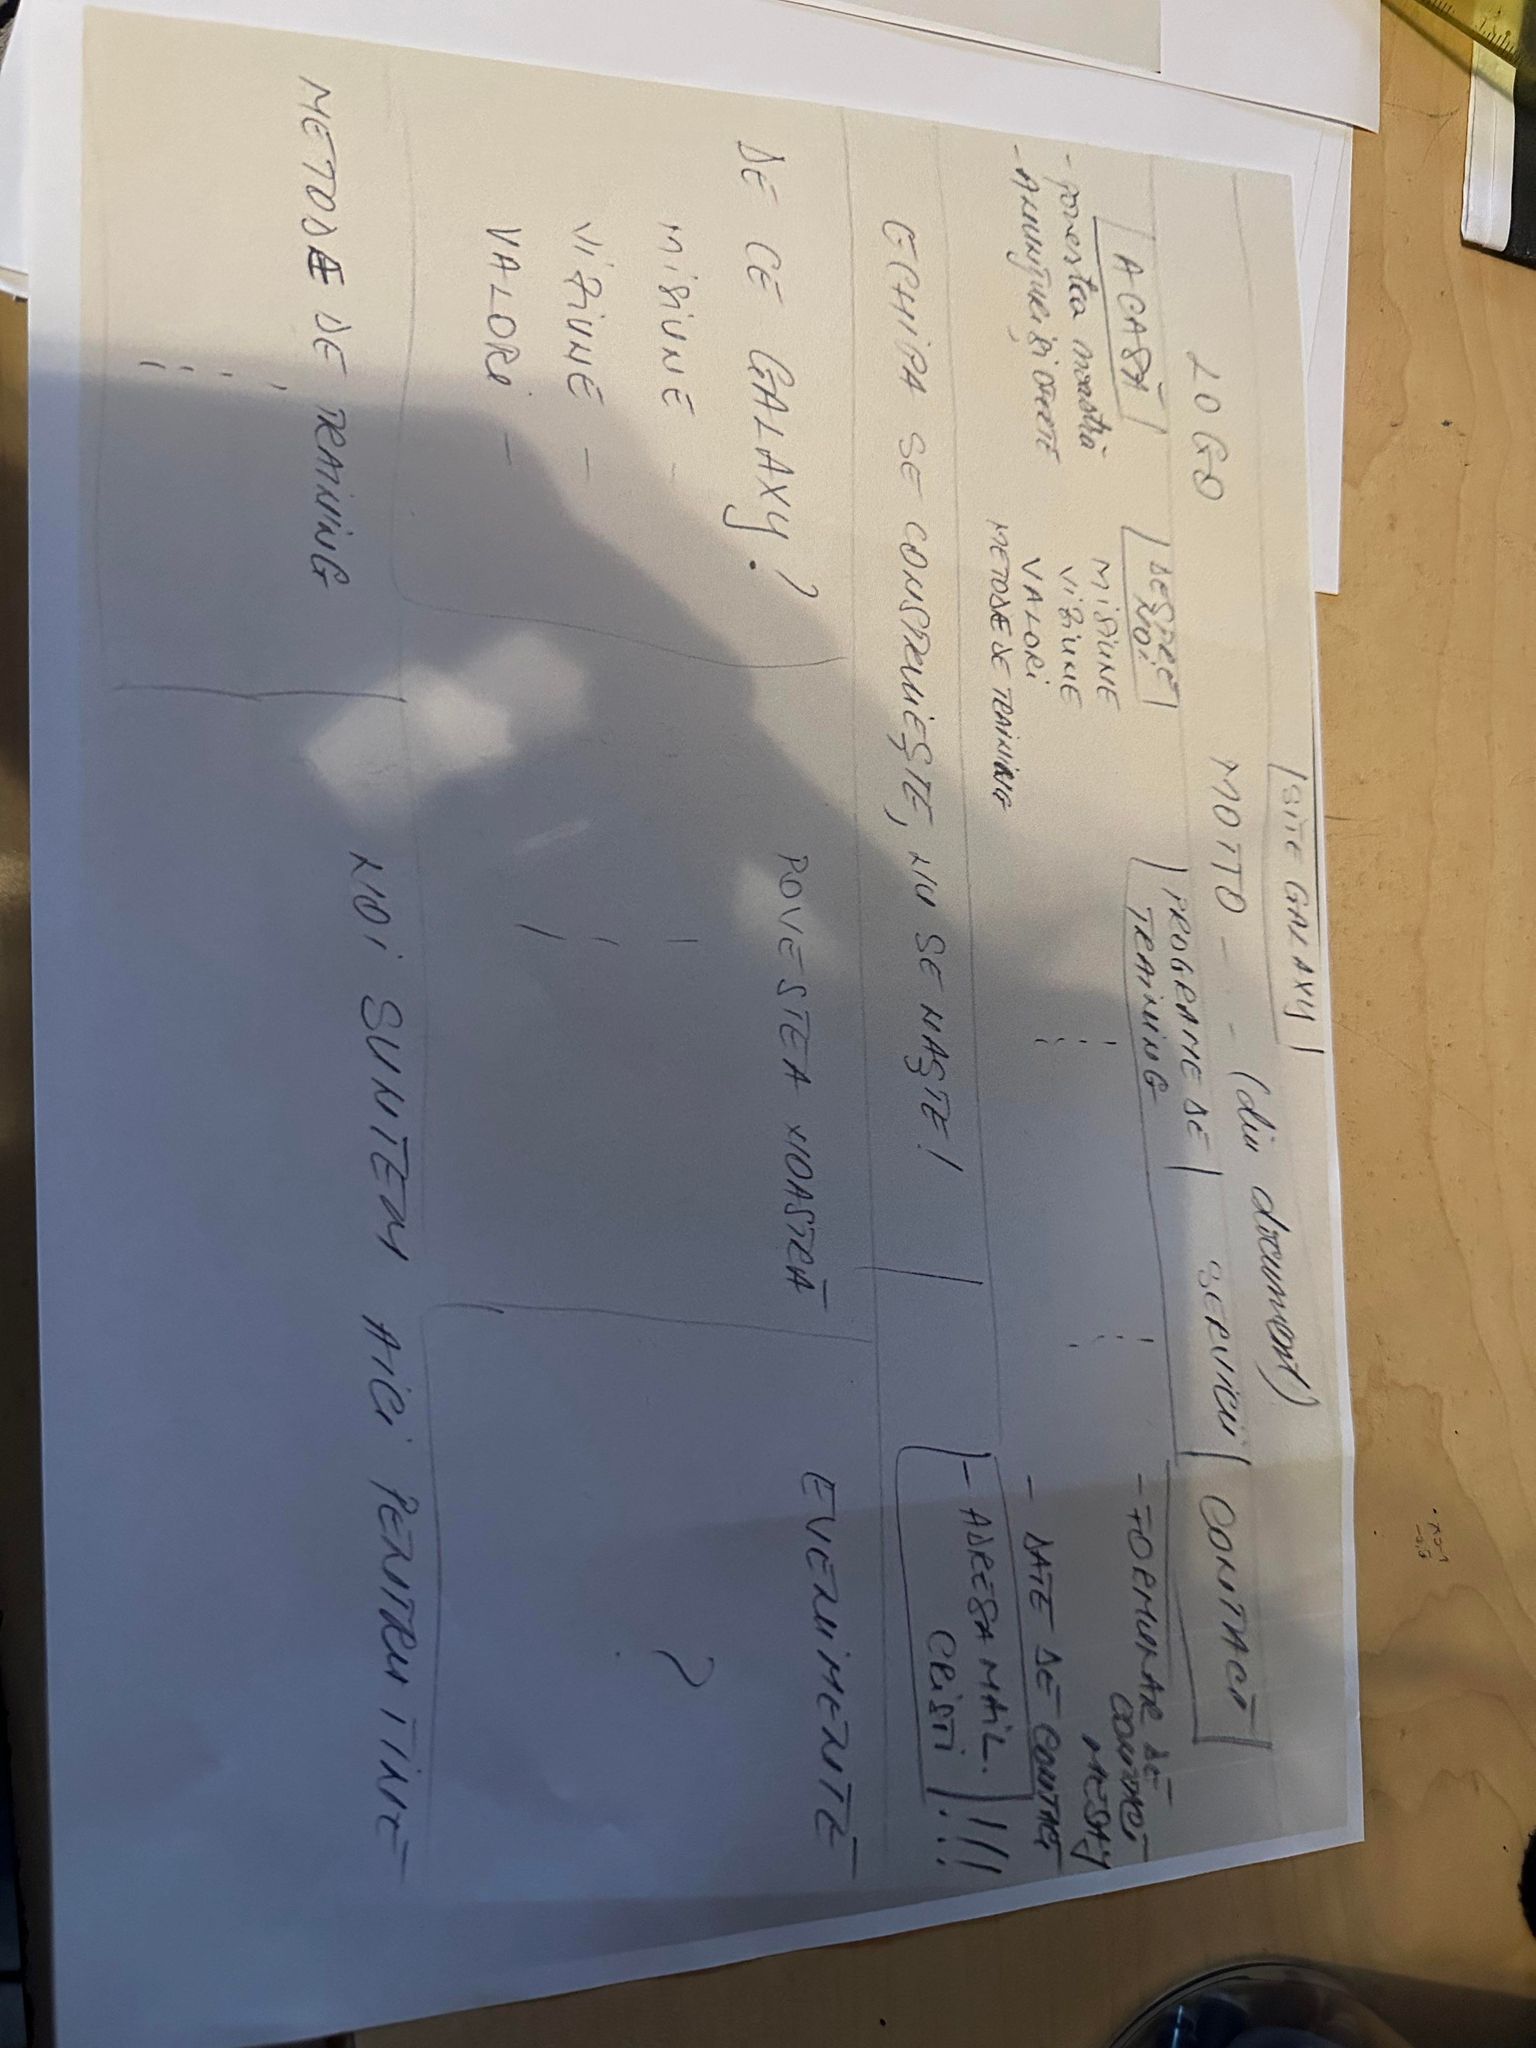 SITE GALAXY
LOGO
MOTTO - - - - (din document)
ACASĂ
- povestea noastră
- ANUNȚURI ȘI OFERTE
DESPRE
NOI
MISIUNE
VIZIUNE
VALORI
METODE DE TRAINING
PROGRAME DE
TRAINING
SERVICII
CONTACT
- FORMULAR DE
CONTACT
MESAJ
- DATE DE CONTACT
- ADRESA MAIL.
CRISTI !!!
ECHIPA SE CONSTRUIEȘTE, NU SE NAȘTE!
DE CE GALAXY?
MISIUNE -
VIZIUNE -
VALORI -
POVESTEA NOASTRĂ
EVENIMENTE
?
METODE DE TRAINING
NOI SUNTEM AICI PENTRU TINE